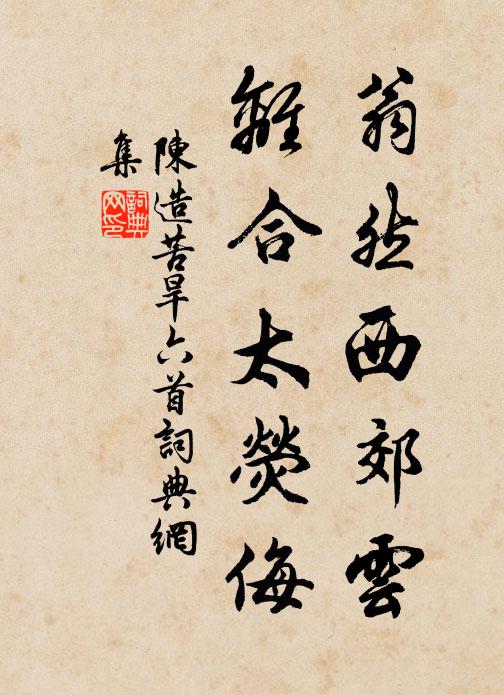 翁然西郊雲
離合太熒侮
陳造苦旱六首詞典網
集
詞典
网印